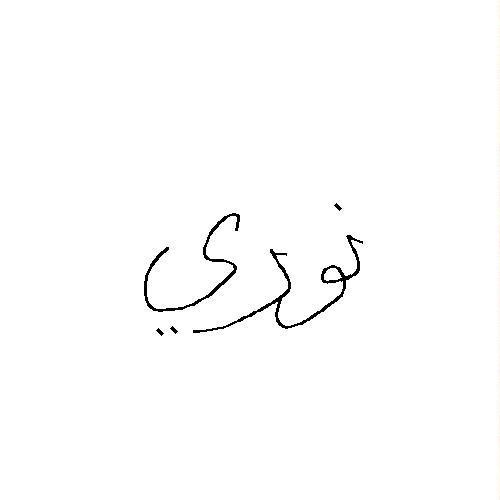 نوري